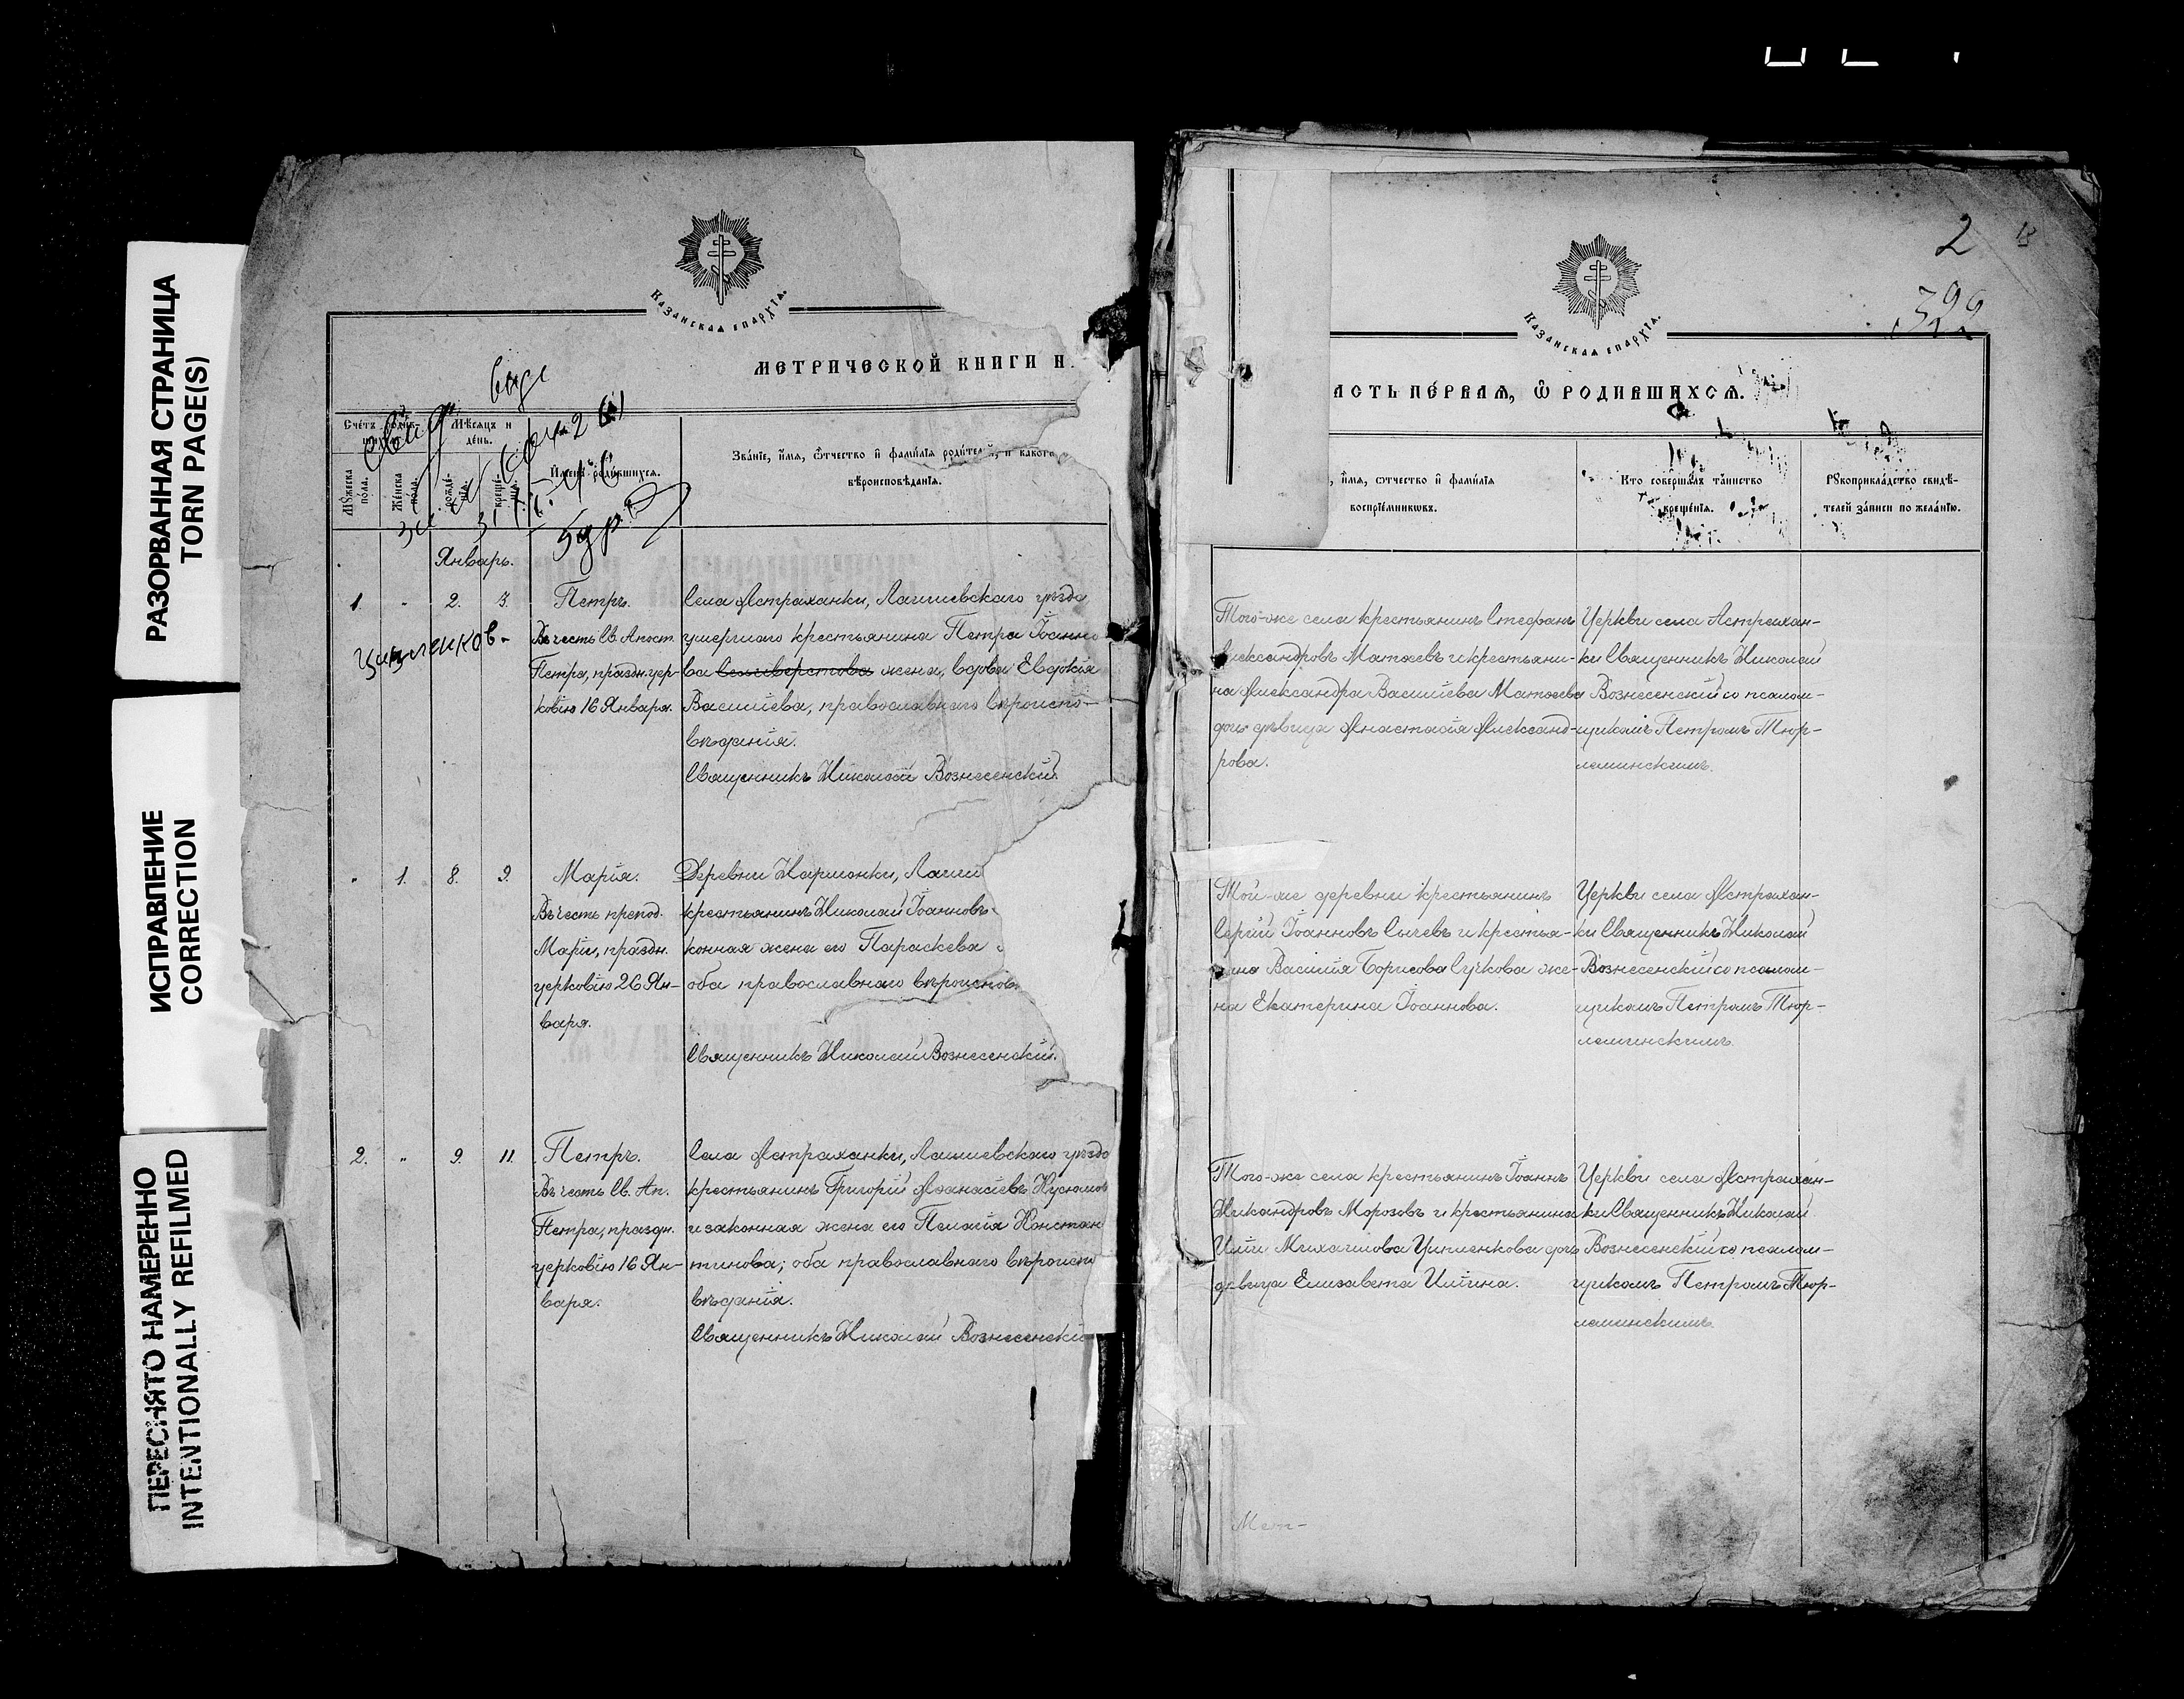 РАЗОРВАННАЯ СТРАНИЦА
TORN PAGE(S)
ИСПРАВЛЕНИЕ
CORRECTION
ПЕРЕСНЯТО НАМЕРЕННО
INTENTIONALLY REFILMED
Казанская епархїѧ.
МЕТРИЧЕСКОЙ КНИГИ Н
Мѣсяцъ и
день.
Мꙋжеска
пола.
Женска
пола.
Имена родившихся.
Званїе, имя, ѿчество и фамилїя родител й, и каког
вѣроисповѣданїя.
Январь.
1. " 2. 3. Петръ.
Въ честь Св. Апост.
Петра, праздн. цер-
ковію 16 Января.
Села Астраханки, Лаишевскаго уѣзда
умершаго крестьянина Петра Іоанно-
ва Селиверстова жена, вдова Евдокія
Василіева, православнаго вѣроиспо-
вѣданія.
Священникъ Николай Вознесенскій.
" 1. 8. 9. Марія.
Въ честь препод.
Маріи, праздн.
церковію 26 Ян-
варя.
Деревни Кармонки, Лаиш
крестьянинъ Николай Іоанновъ
конная жена его Параскева
оба православнаго вѣроиспов.
Священникъ Николай Вознесенскій.
2. " 9. 11. Петръ.
Въ честь Св. Ап.
Петра, праздн.
церковію 16 Ян-
варя.
Села Астраханки, Лаишевскаго уѣзда
крестьянинъ Григорій Аѳанасіевъ
и законная жена его Пелагія Констан
тинова; оба православнаго вѣроиспо
вѣданія.
Священникъ Николай Вознесенскі
2
Казанская епархїѧ.
АСТЬ ПЕРВАѦ, Ѿ РОДИВШИХСѦ.
, имя, ѿчество и фамилїя
воспрїемникѡвъ.
Кто совершалъ таинство
крещенїя.
Рꙋкоприкладство свидѣ-
телей записи по желанїю.
Того-же села крестьянинъ Стефанъ
Александровъ Матѳеевъ и крестьяни-
на Александра Василіева Матѳеева
дочь дѣвица Анастасія Александ-
рова.
Церкви села Астрахан-
ки Священникъ Николай
Вознесенскій со псалом-
щикомъ Петромъ Тюр-
леминскимъ.
Той-же деревни крестьянинъ
Сергій Іоанновъ Сычевъ и крестья-
нина Василія Борисова Сучкова же-
на Екатерина Іоаннова.
Церкви села Астрахан-
ки Священникъ Николай
Вознесенскій со псалом-
щикомъ Петромъ Тюр-
леминскимъ.
Того-же села крестьянинъ Іоаннъ
Никандровъ Морозовъ и крестьянина
Иліи Михаилова Ципленкова дочь
дѣвица Елизавета Иліина.
Церкви села Астрахан-
ки Священникъ Николай
Вознесенскій со псалом-
щикомъ Петромъ Тюр-
леминскимъ.